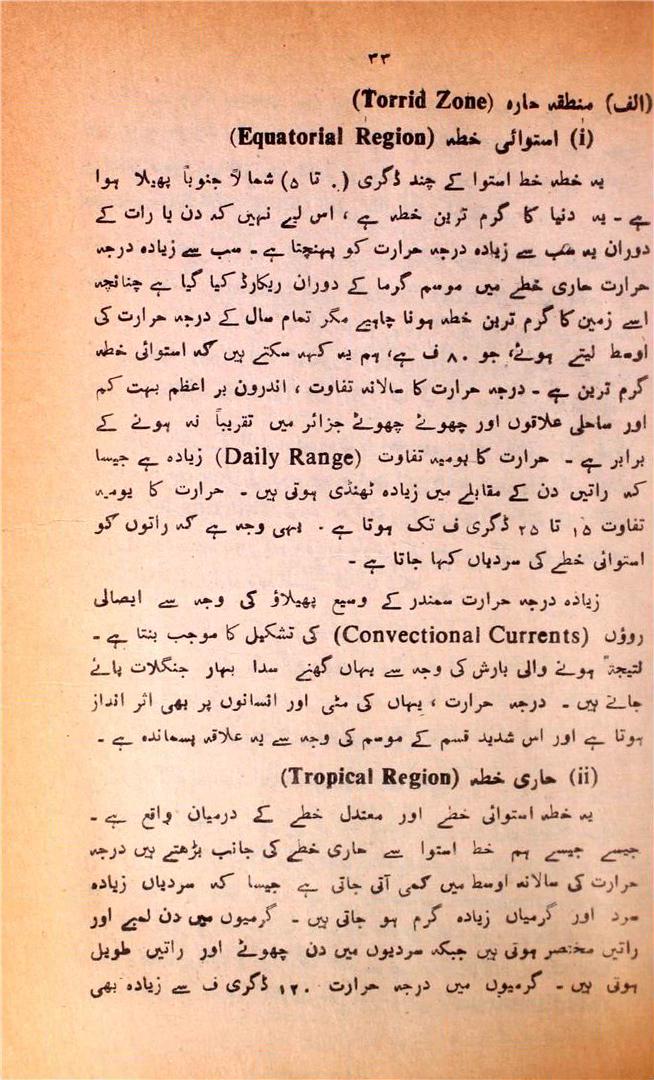 ۳۳
(الف) منطقہ حارہ (Torrid Zone)
(i) استوائی خطہ (Equatorial Region)
یہ خطہ خط استوا کے چند ڈگری (۰ تا ۵) شمالاً جنوباً پھیلا ہوا
ہے - یہ دنیا کا گرم ترین خطہ ہے ، اس لیے نہیں کہ دن یا رات کے
دوران یہ سب سے زیادہ درجہ حرارت کو پہنچتا ہے - سب سے زیادہ درجہ
حرارت حاری خطے میں موسم گرما کے دوران ریکارڈ کیا گیا ہے چنانچہ
اسے زمین کا گرم ترین خطہ ہونا چاہیے مگر تمام سال کے درجہ حرارت کی
اوسط لیتے ہوئے، جو ۸۰ ف ہے، ہم یہ کہہ سکتے ہیں کہ استوائی خطہ
گرم ترین ہے - درجہ حرارت کا سالانہ تفاوت ، اندرون بر اعظم بہت کم
اور ساحلی علاقوں اور چھوٹے چھوٹے جزائر میں تقریباً نہ ہونے کے
برابر ہے - حرارت کا یومیہ تفاوت (Daily Range) زیادہ ہے جیسا
کہ راتیں دن کے مقابلے میں زیادہ ٹھنڈی ہوتی ہیں - حرارت کا یومیہ
تفاوت ۱۵ تا ۲۵ ڈگری ف تک ہوتا ہے - یہی وجہ ہے کہ راتوں کو
استوائی خطے کی سردیاں کہا جاتا ہے -
زیادہ درجہ حرارت سمندر کے وسیع پھیلاؤ کی وجہ سے ایصالی
روؤں (Convectional Currents) کی تشکیل کا موجب بنتا ہے -
نتیجۃً ہونے والی بارش کی وجہ سے یہاں گھنے سدا بہار جنگلات پائے
جاتے ہیں - درجہ حرارت ، یہاں کی مٹی اور انسانوں پر بھی اثر انداز
ہوتا ہے اور اس شدید قسم کے موسم کی وجہ سے یہ علاقہ پسماندہ ہے -
(ii) حاری خطہ (Tropical Region)
یہ خطہ استوائی خطے اور معتدل خطے کے درمیان واقع ہے -
جیسے جیسے ہم خط استوا سے حاری خطے کی جانب بڑھتے ہیں درجہ
حرارت کی سالانہ اوسط میں کمی آتی جاتی ہے جیسا کہ سردیاں زیادہ
سرد اور گرمیاں زیادہ گرم ہو جاتی ہیں - گرمیوں میں دن لمبے اور
راتیں مختصر ہوتی ہیں جبکہ سردیوں میں دن چھوٹے اور راتیں طویل
ہوتی ہیں - گرمیوں میں درجہ حرارت ۱۲۰ ڈگری ف سے زیادہ بھی